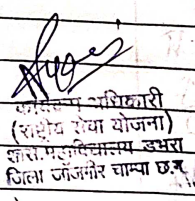 कार्यक्रम अधिकारी
(राष्ट्रीय सेवा योजना)
शास. महाविद्यालय डभरा
जिला जाँजगीर चाम्पा छ.ग.